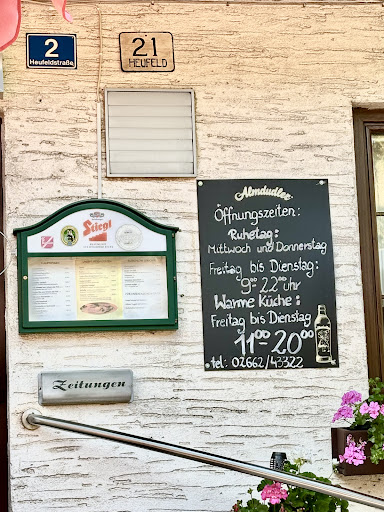 2
Heufeldstraße
21
HEUFELD
Stiegl
Zeitungen
Almdudler
Öffnungszeiten:
Ruhetag:
Mittwoch und Donnerstag
Freitag bis Dienstag:
9⁰⁰ 22⁰⁰ Uhr
Warme Küche:
Freitag bis Dienstag
11⁰⁰ - 20⁰⁰
tel: 02662/43322